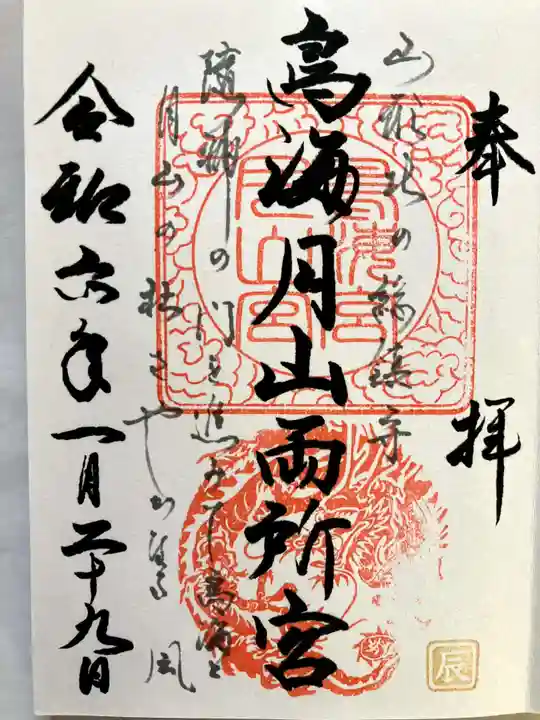 奉拝
山形北の鎮護守
鳥海月山両所宮
随神の門を進みて鳥海と
月山の杜さやかなる風
令和六年一月二十九日
鳥海宮
月山宮
辰